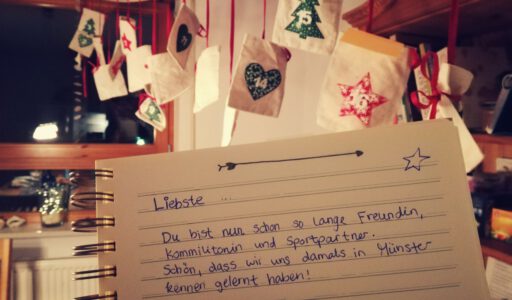 Liebste ...
Du bist nun schon so lange Freundin,
Kommilitonin und Sportpartner.
Schön, dass wir uns damals in Münster
kennen gelernt haben!